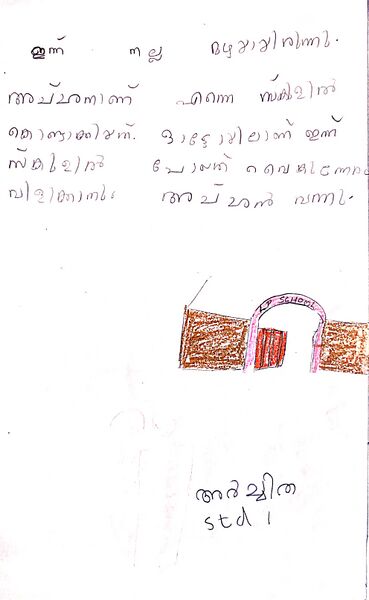 ഇന്ന് നല്ല മഴയായിരുന്നു.
അച്ഛനാണ് എന്നെ സ്കൂളിൽ
കൊണ്ടാക്കിയത്. ഓട്ടോയിലാണ് ഇന്ന്
സ്കൂളിൽ പോയത് വൈകുന്നേരം
വിളിക്കാനും അച്ഛൻ വന്നു.
L P SCHOOL
അർച്ചിത
std 1